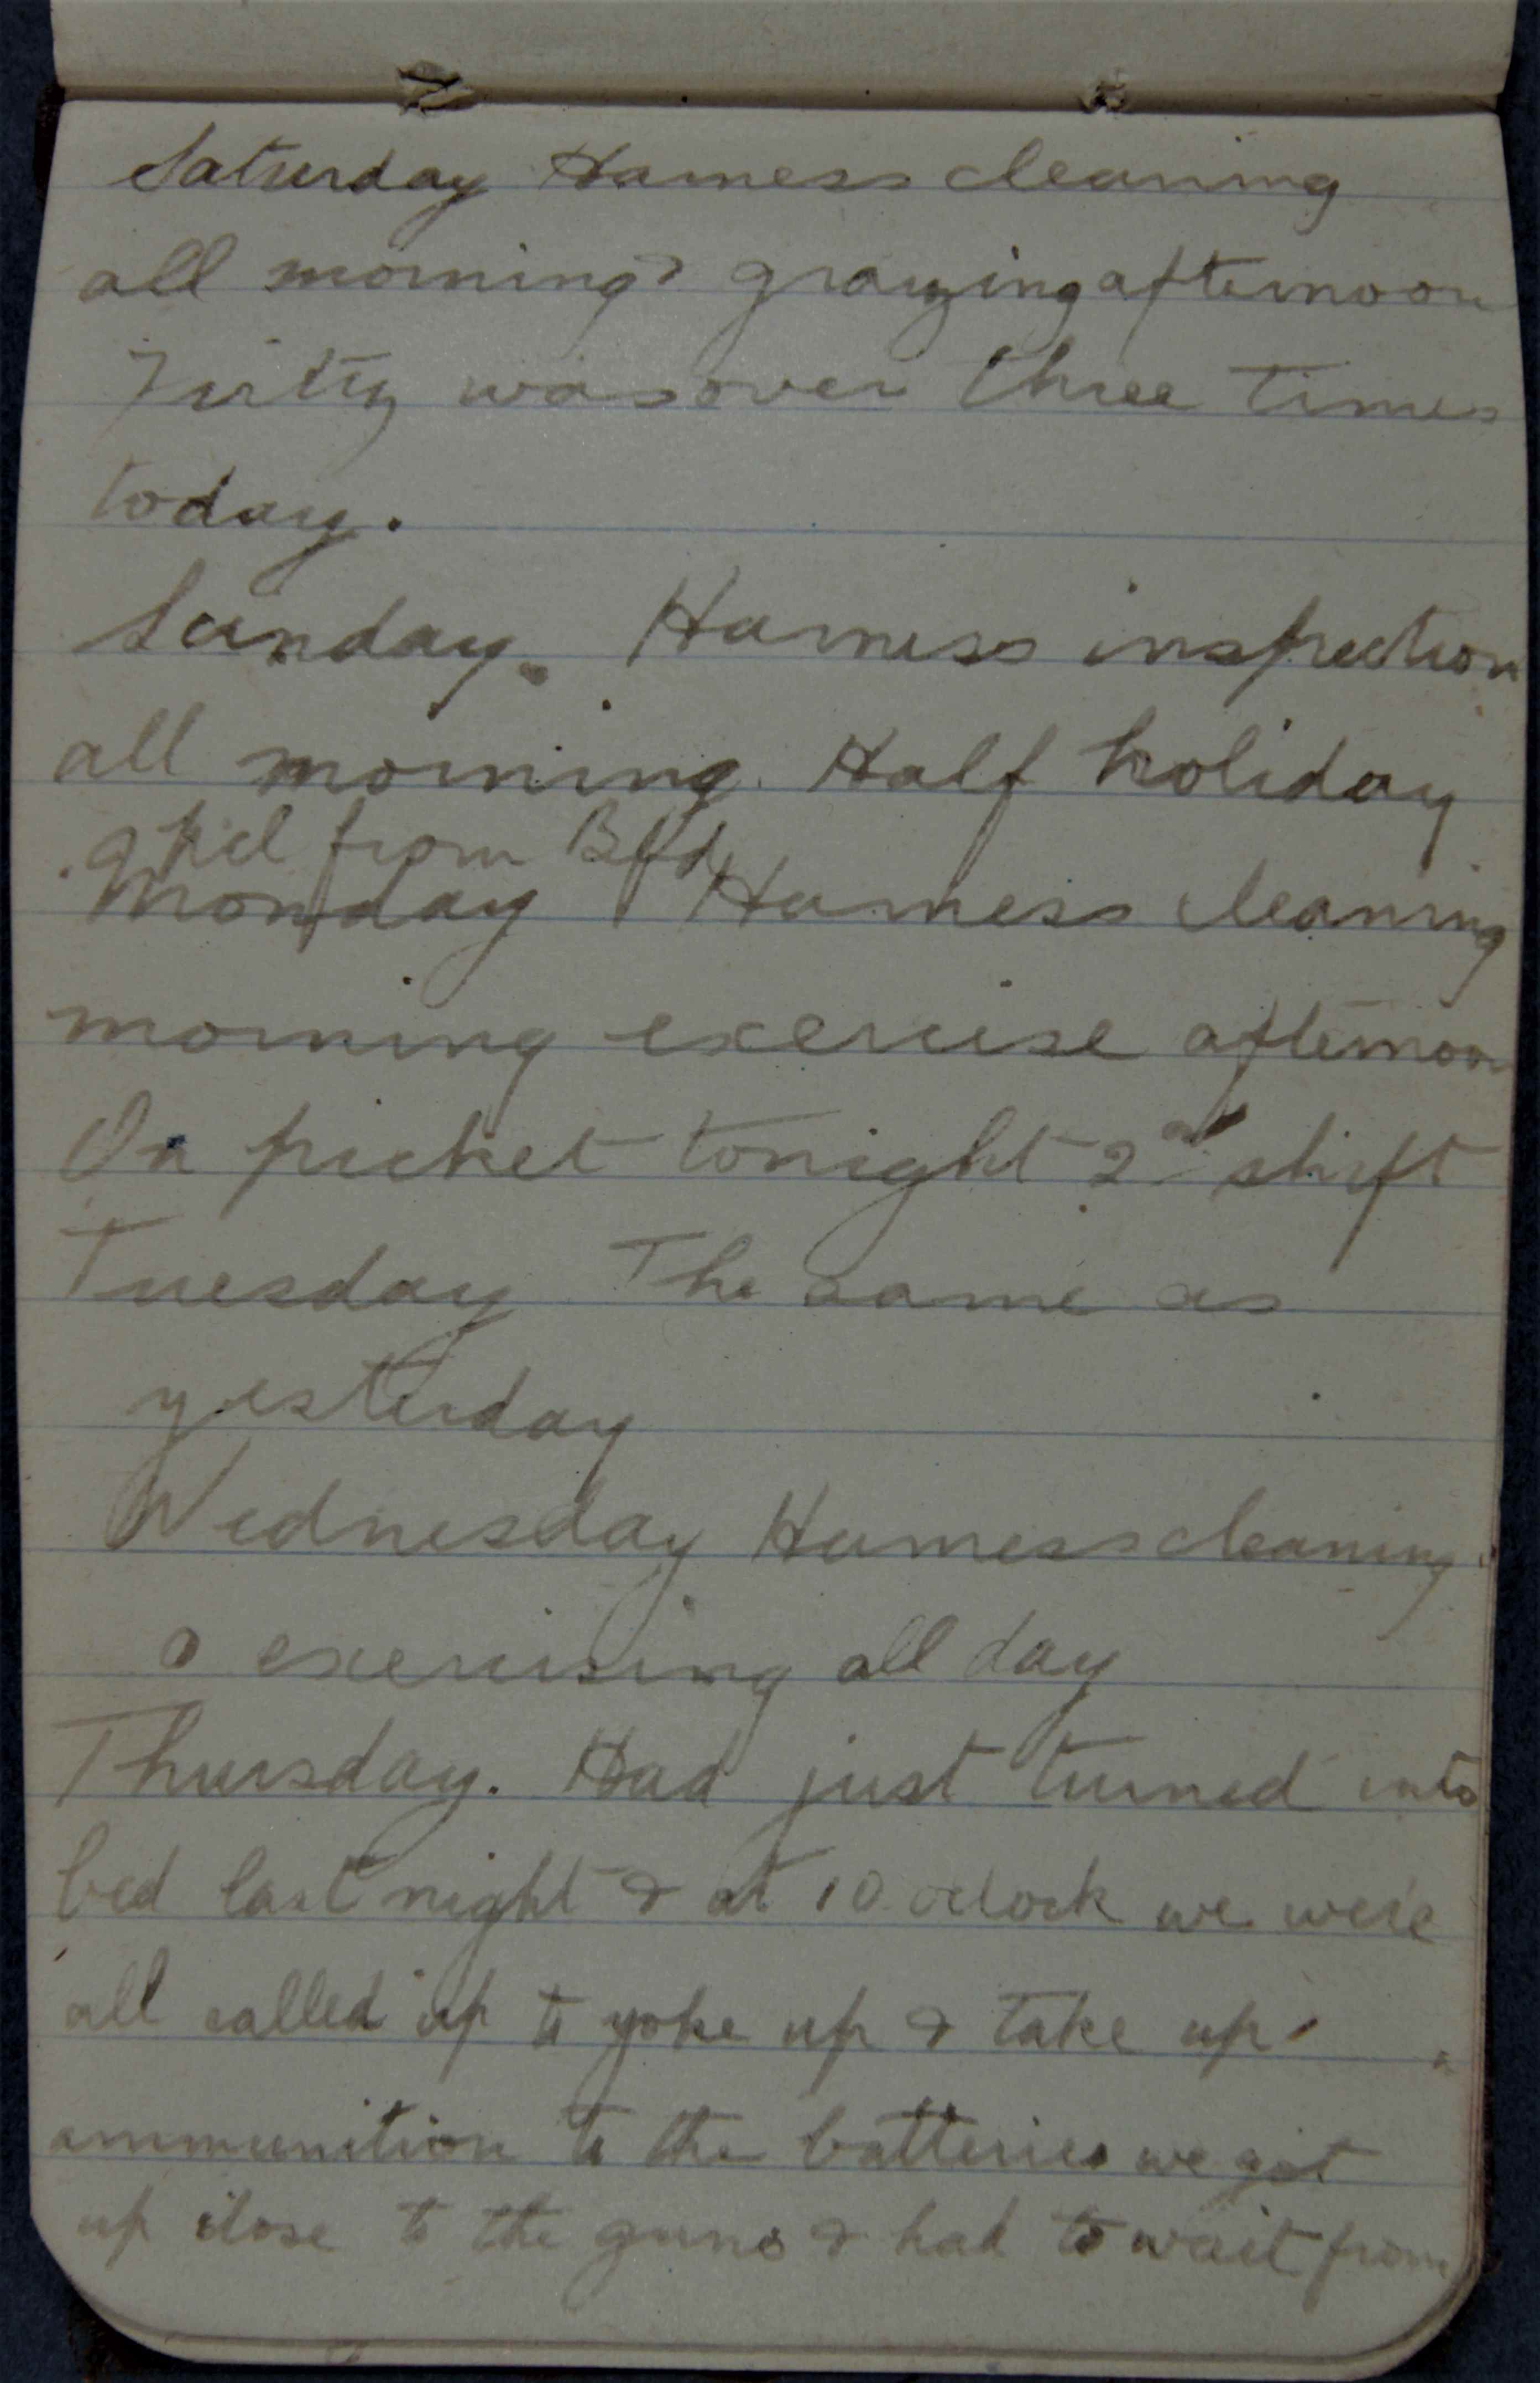 Saturday Harness cleaning
all morning & grazing afternoon
was over three times
today.
Sunday. Harness inspection
all morning. Half holiday
from Bfd
Monday Harness cleaning
morning exercise afternoon
On picket tonight 2nd shift
Tuesday The same as
yesterday
Wednesday Harness cleaning
& exercising all day
Thursday. Had just turned into
bed last night & at 10 oclock we were
all called up to yoke up & take up
ammunition to the batteries we got
up close to the guns & had to wait from